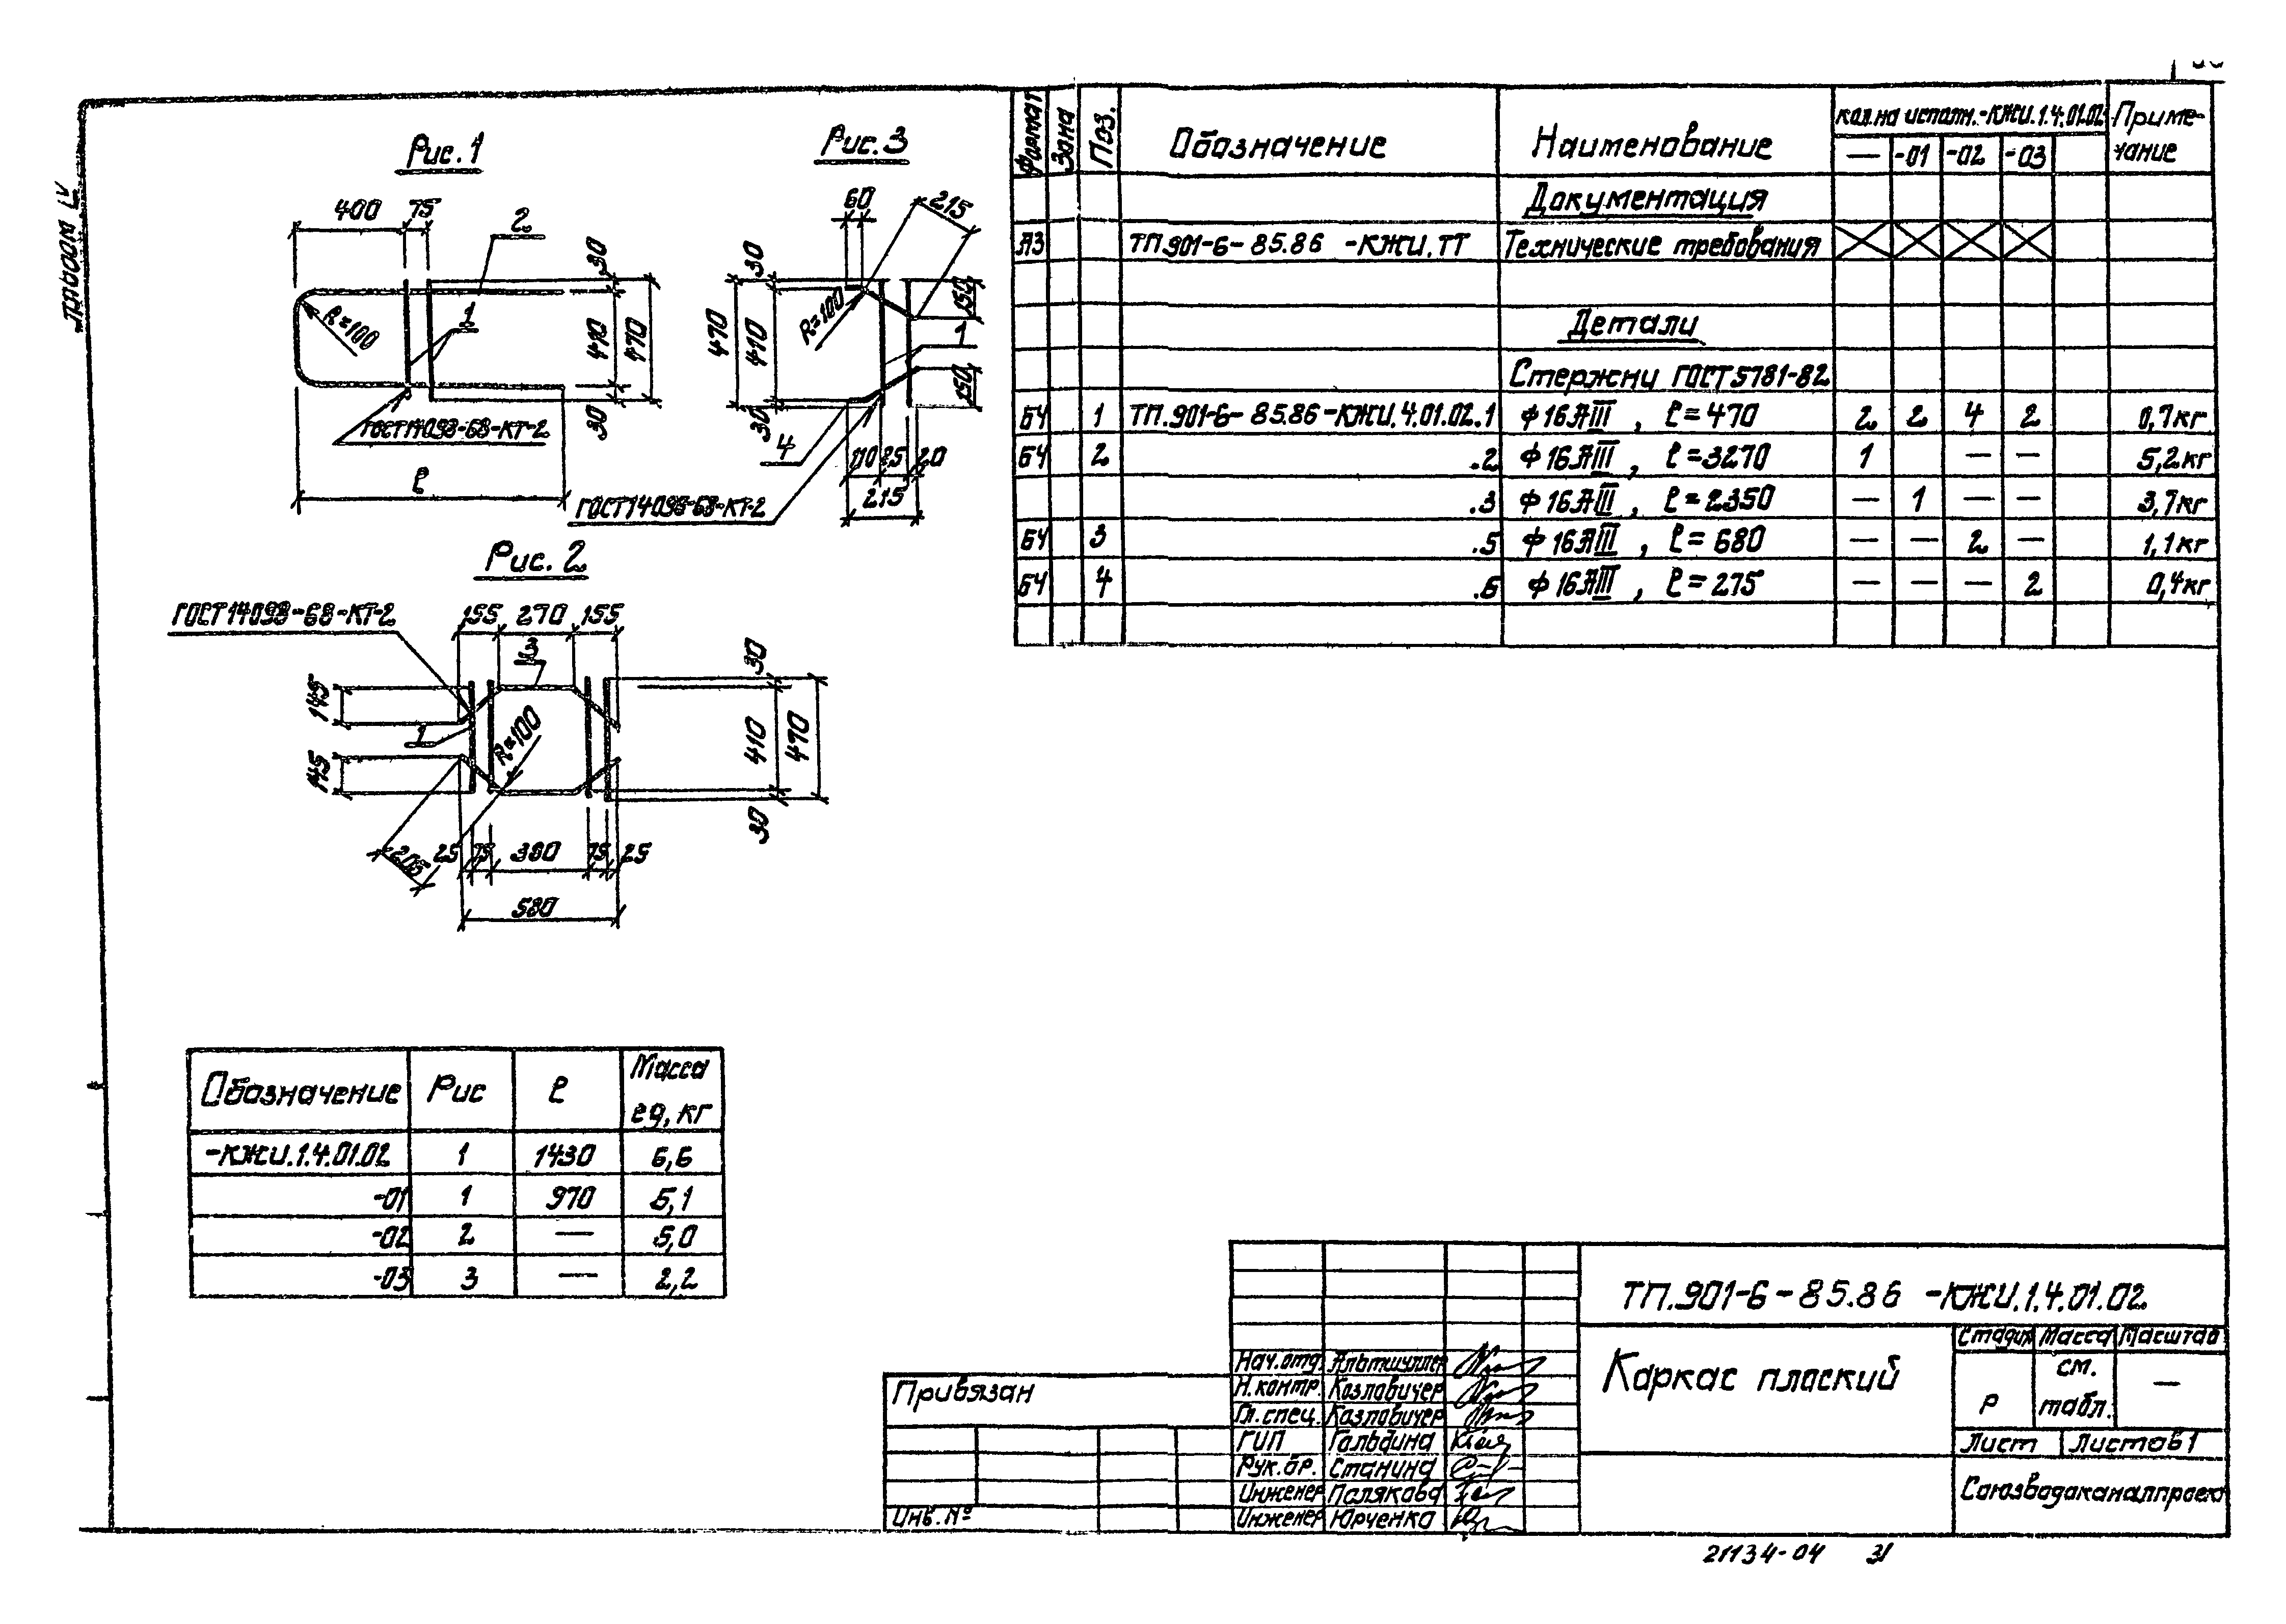 Альбом IV
Рис. 1
400 75
2
30
R=100
1
410
470
30
ГОСТ 14098-68-КТ-2
ℓ
Рис. 3
60
215
30
150
470
410
R=100
1
150
30
4
110 85 20
215
ГОСТ 14098-68-КТ-2
Рис. 2
ГОСТ 14098-68-КТ-2
155 270 155
3
30
145
1
R=100
410
470
145
30
205
25 75 380 75 25
580
Формат Зона Поз. Обозначение Наименование Кол. на исполн.-КЖИ.1.4.01.02 Приме-
чание
— -01 -02 -03
Документация
А3 ТП.901-6-85.86 -КЖИ.ТТ Технические требования
Детали
Стержни ГОСТ 5781-82
БЧ 1 ТП.901-6-85.86-КЖИ.4.01.02.1 Ф16АIII, ℓ=470 2 2 4 2 0,7кг
БЧ 2 .2 Ф16АIII, ℓ=3270 1 — — 5,2кг
.3 Ф16АIII, ℓ=2350 — 1 — — 3,7кг
БЧ 3 .5 Ф16АIII, ℓ=680 — — 2 — 1,1кг
БЧ 4 .6 Ф16АIII, ℓ=275 — — — 2 0,4кг
Обозначение Рис ℓ Масса
ед, кг
-КЖИ.1.4.01.02 1 1430 6,6
-01 1 970 5,1
-02 2 — 5,0
-03 3 — 2,2
ТП.901-6-85.86 -КЖИ.1.4.01.02
Каркас плоский
Стадия Масса Масштаб
Р см. —
табл.
Лист Листов 1
Союзводоканалпроект
Нач.отд. Альтшуллер
Н.контр. Козловичер
Гл.спец. Козловичер
ГИП Гольдина
Рук.бр. Станина
Инженер Полякова
Инженер Юрченко
Привязан
Инв. №
21134-04 31